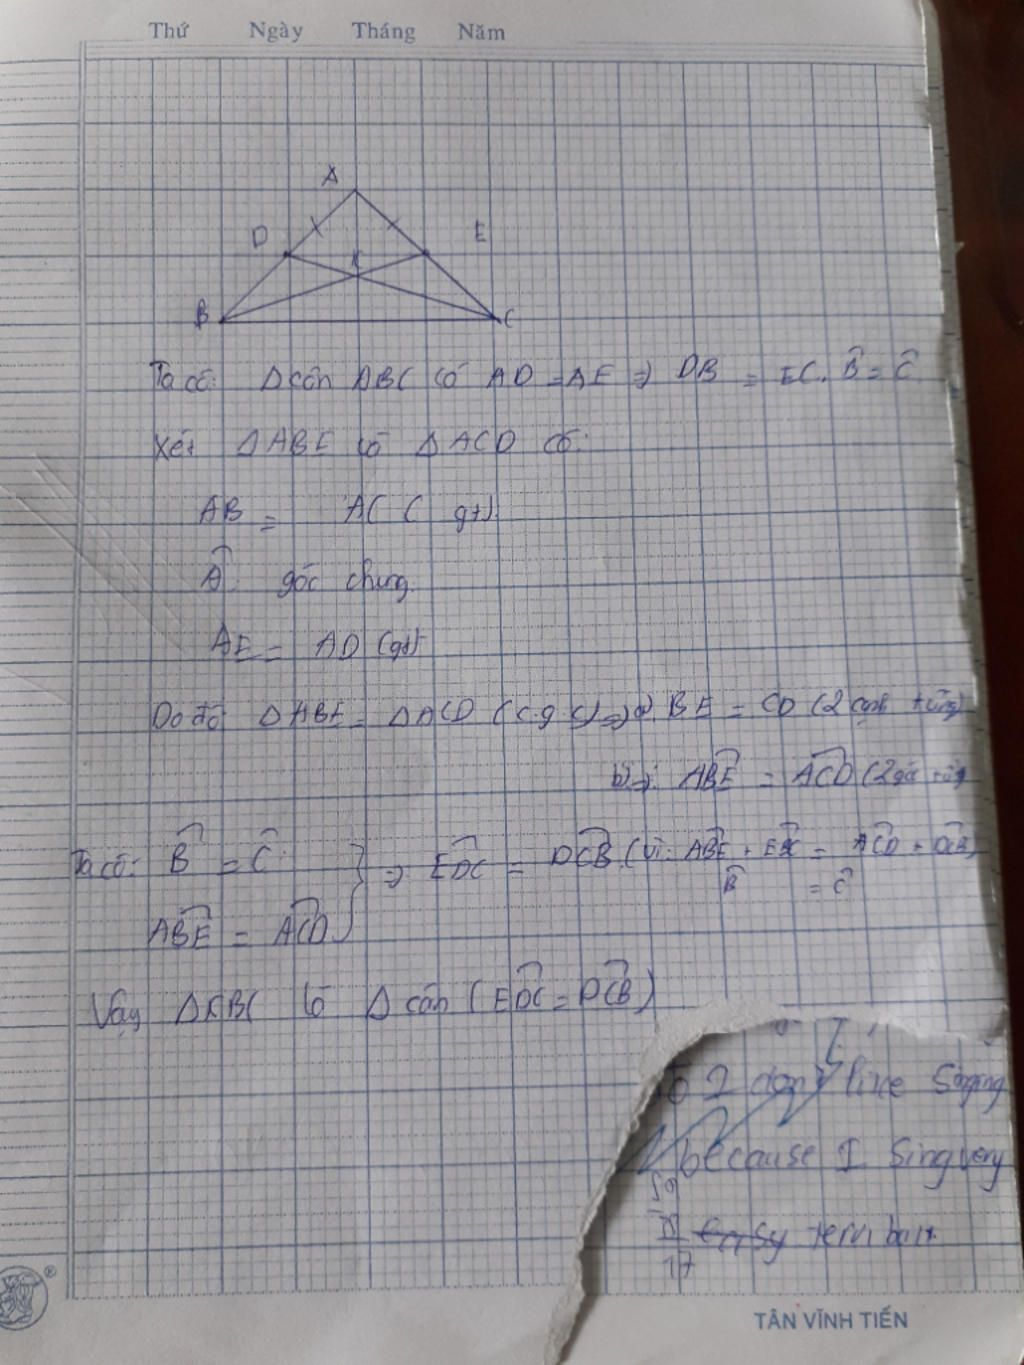 Thứ Ngày Tháng Năm
A
D E
K
B C
Ta có: Δ cân ABC có AD = AE ⇒ DB = EC, B̂ = Ĉ
Xét ΔABE và ΔACD có:
AB = AC (gt)
Â: góc chung
AE = AD (gt)
Do đó ΔABE = ΔACD (c.g.c) ⇒ a) BE = CD (2 cạnh tứng)
b) ⇒ ABE = ACD (2 góc
Ta có: B̂ = Ĉ } ⇒ EDC = DCB (vì: ABE + EBC = ACD + DCB)
B̂ = Ĉ
ABE = ACD
Vậy ΔKBC là Δ cân (EDC = DCB)
I don't like Singing
because I Sing very
easy
17
TÂN VĨNH TIẾN